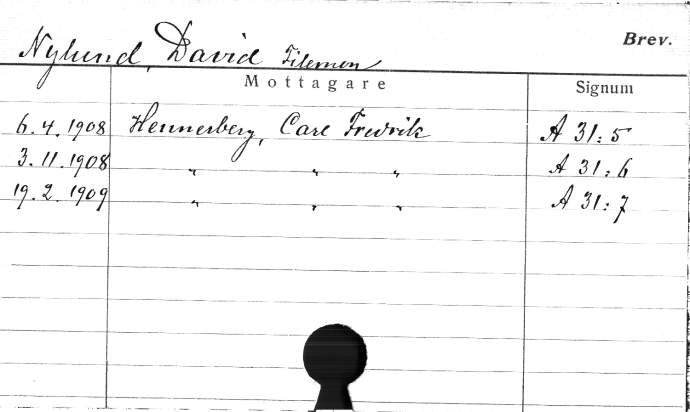 Brev.
Nylund, David Filemon
Mottagare Signum
6.4.1908 Hennerberg, Carl Fredrik A 31:5
3.11.1908 " " " A 31:6
19.2.1909 " " " A 31:7